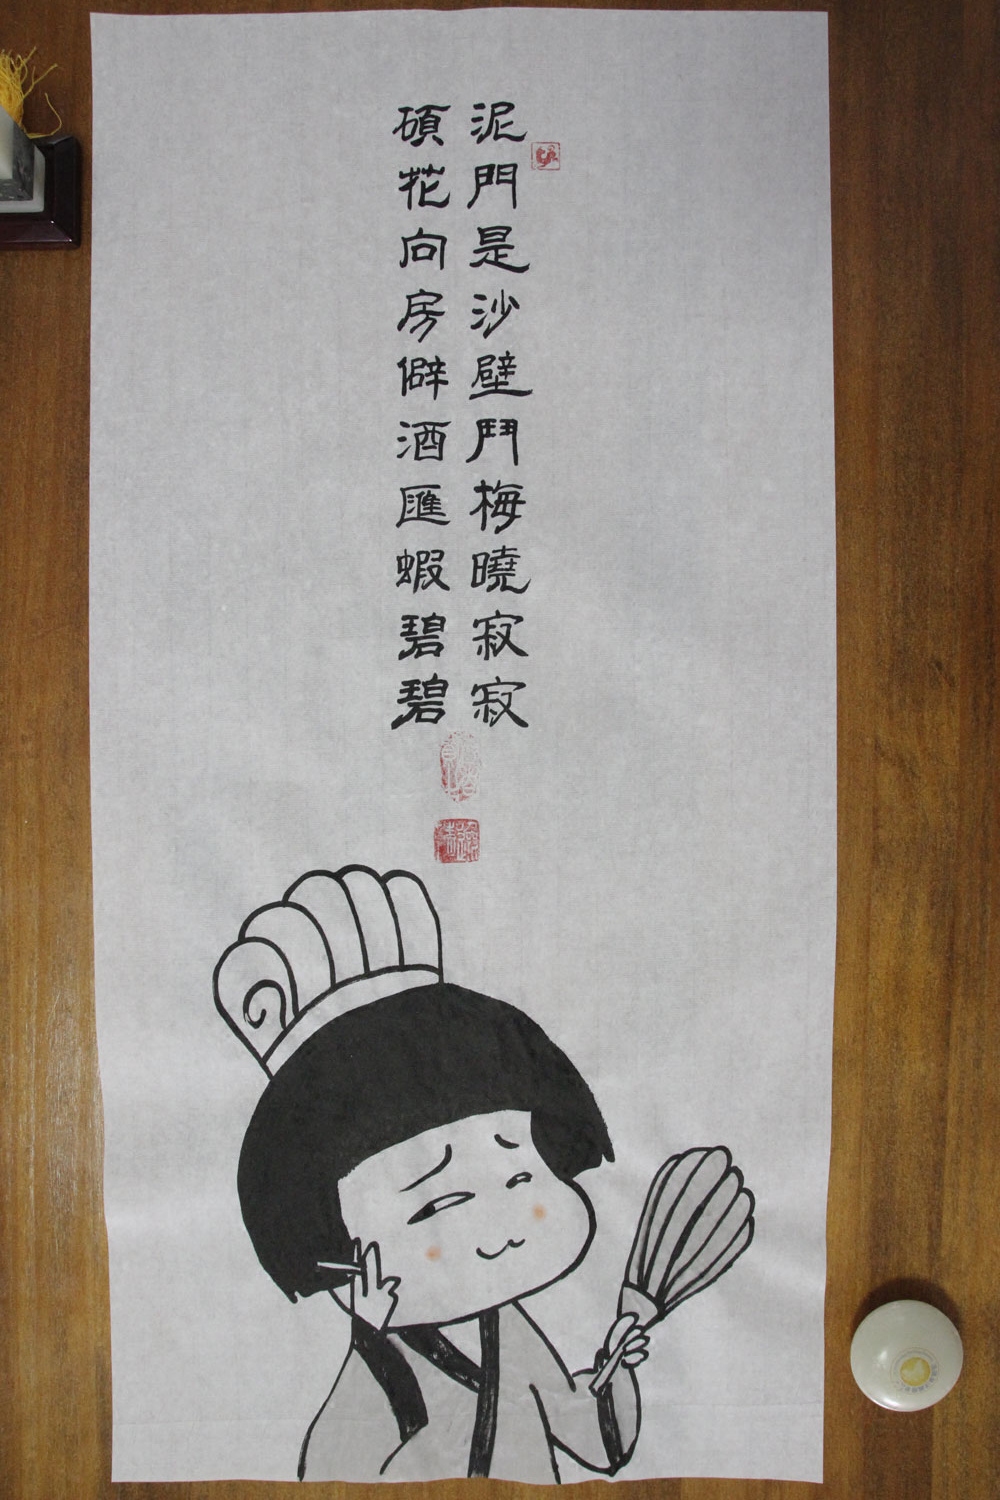 泥門是沙壁鬥梅曉寂寂
碩花向房僻酒匯蝦碧碧